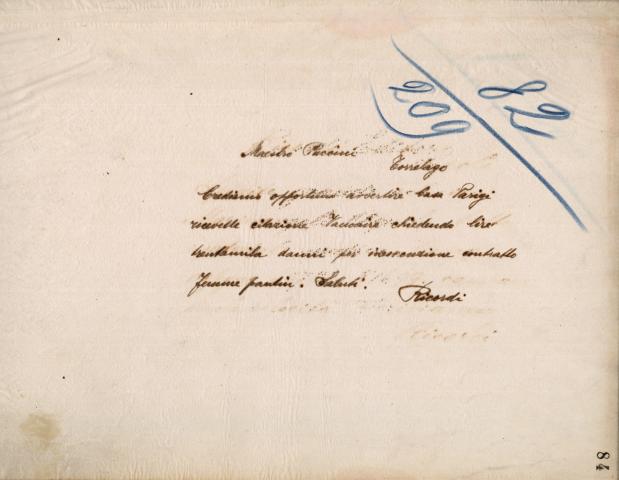 82
209
Maestro Puccini
Torrelago
Crediamo opportuno avvertire Casa Parigi
ricevette citazione Vaucaire chiedendo lire
trentamila danni per inesecuzione contratto
Femme pantin. Saluti.
Ricordi
84